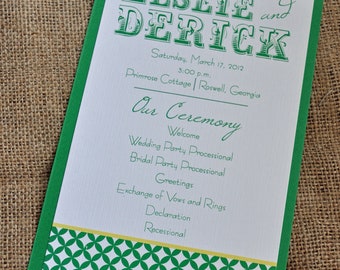 LESLIE
and
DERICK
Saturday, March 17, 2012
5:00 p.m.
Primrose Cottage | Roswell, Georgia
Our Ceremony
Welcome
Wedding Party Processional
Bridal Party Processional
Greetings
Exchange of Vows and Rings
Declaration
Recessional